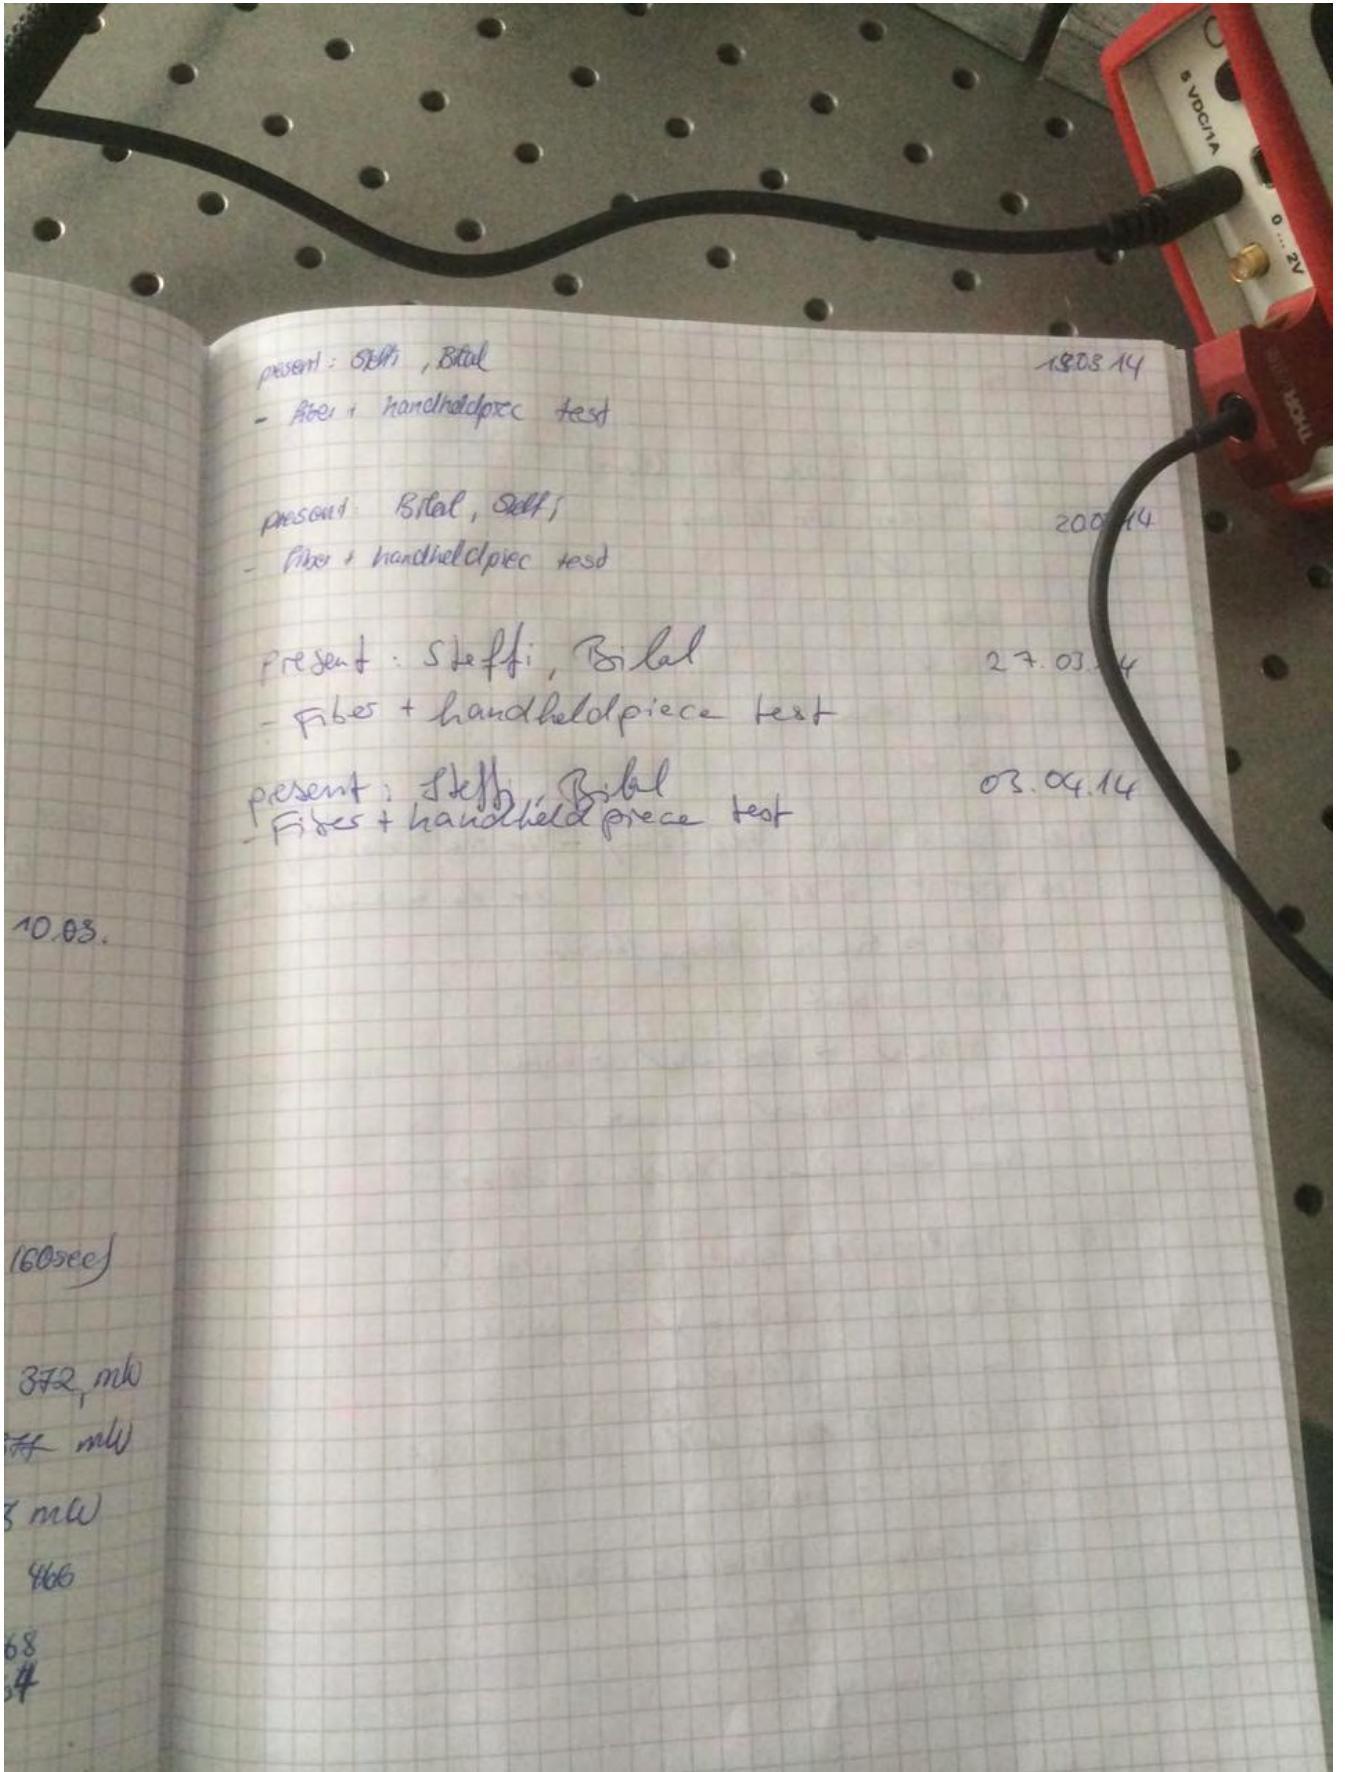 5 VDC/1A
0 ... 2V
THOR
present: Steffi, Bilal 19.03.14
- Fiber + handheldpiec test
present: Bilal, Steffi 20.0 14
- Fiber + handheldpiec test
present: Steffi, Bilal 27.03.14
- Fiber + handheldpiece test
present: Steffi, Bilal 03.04.14
- Fiber + handheldpiece test
10.03.
(60sec)
372, mW
mW
mW
466
68